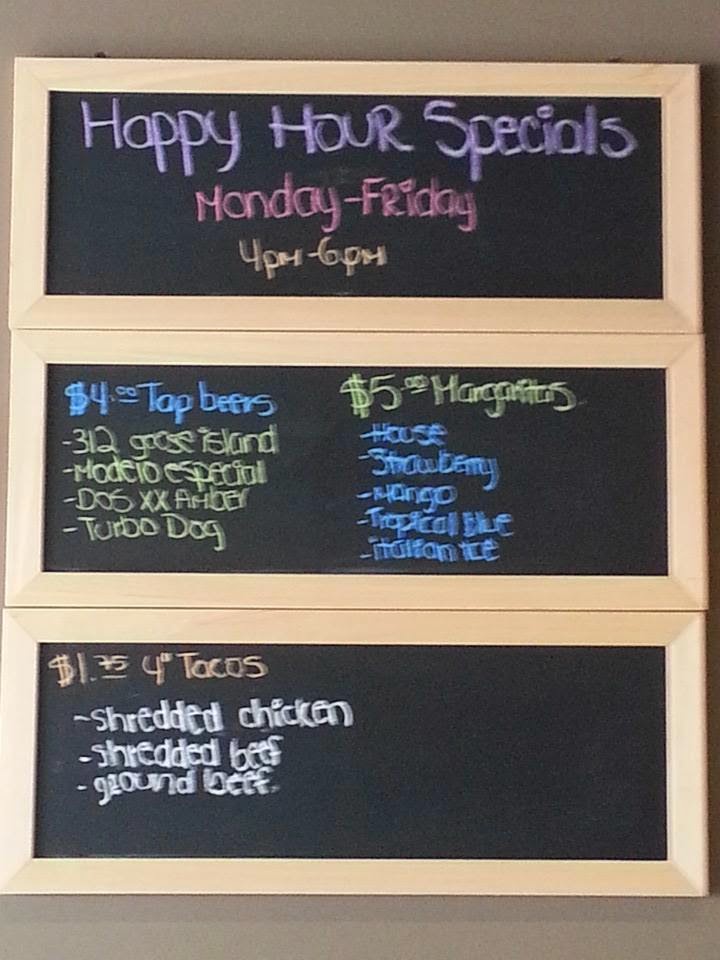 Happy HOUR Specials
Monday-FRiday
4pm-6pm
$4.00 Tap beers
-312 goose island
-Modelo especial
-Dos XX Amber
-Turbo Dog
$5.00 Margaritas
-House
-Strawberry
-Mango
-Tropical Blue
-italian ice
$1.75 4" Tacos
-shredded chicken
-shredded beef
-ground beef